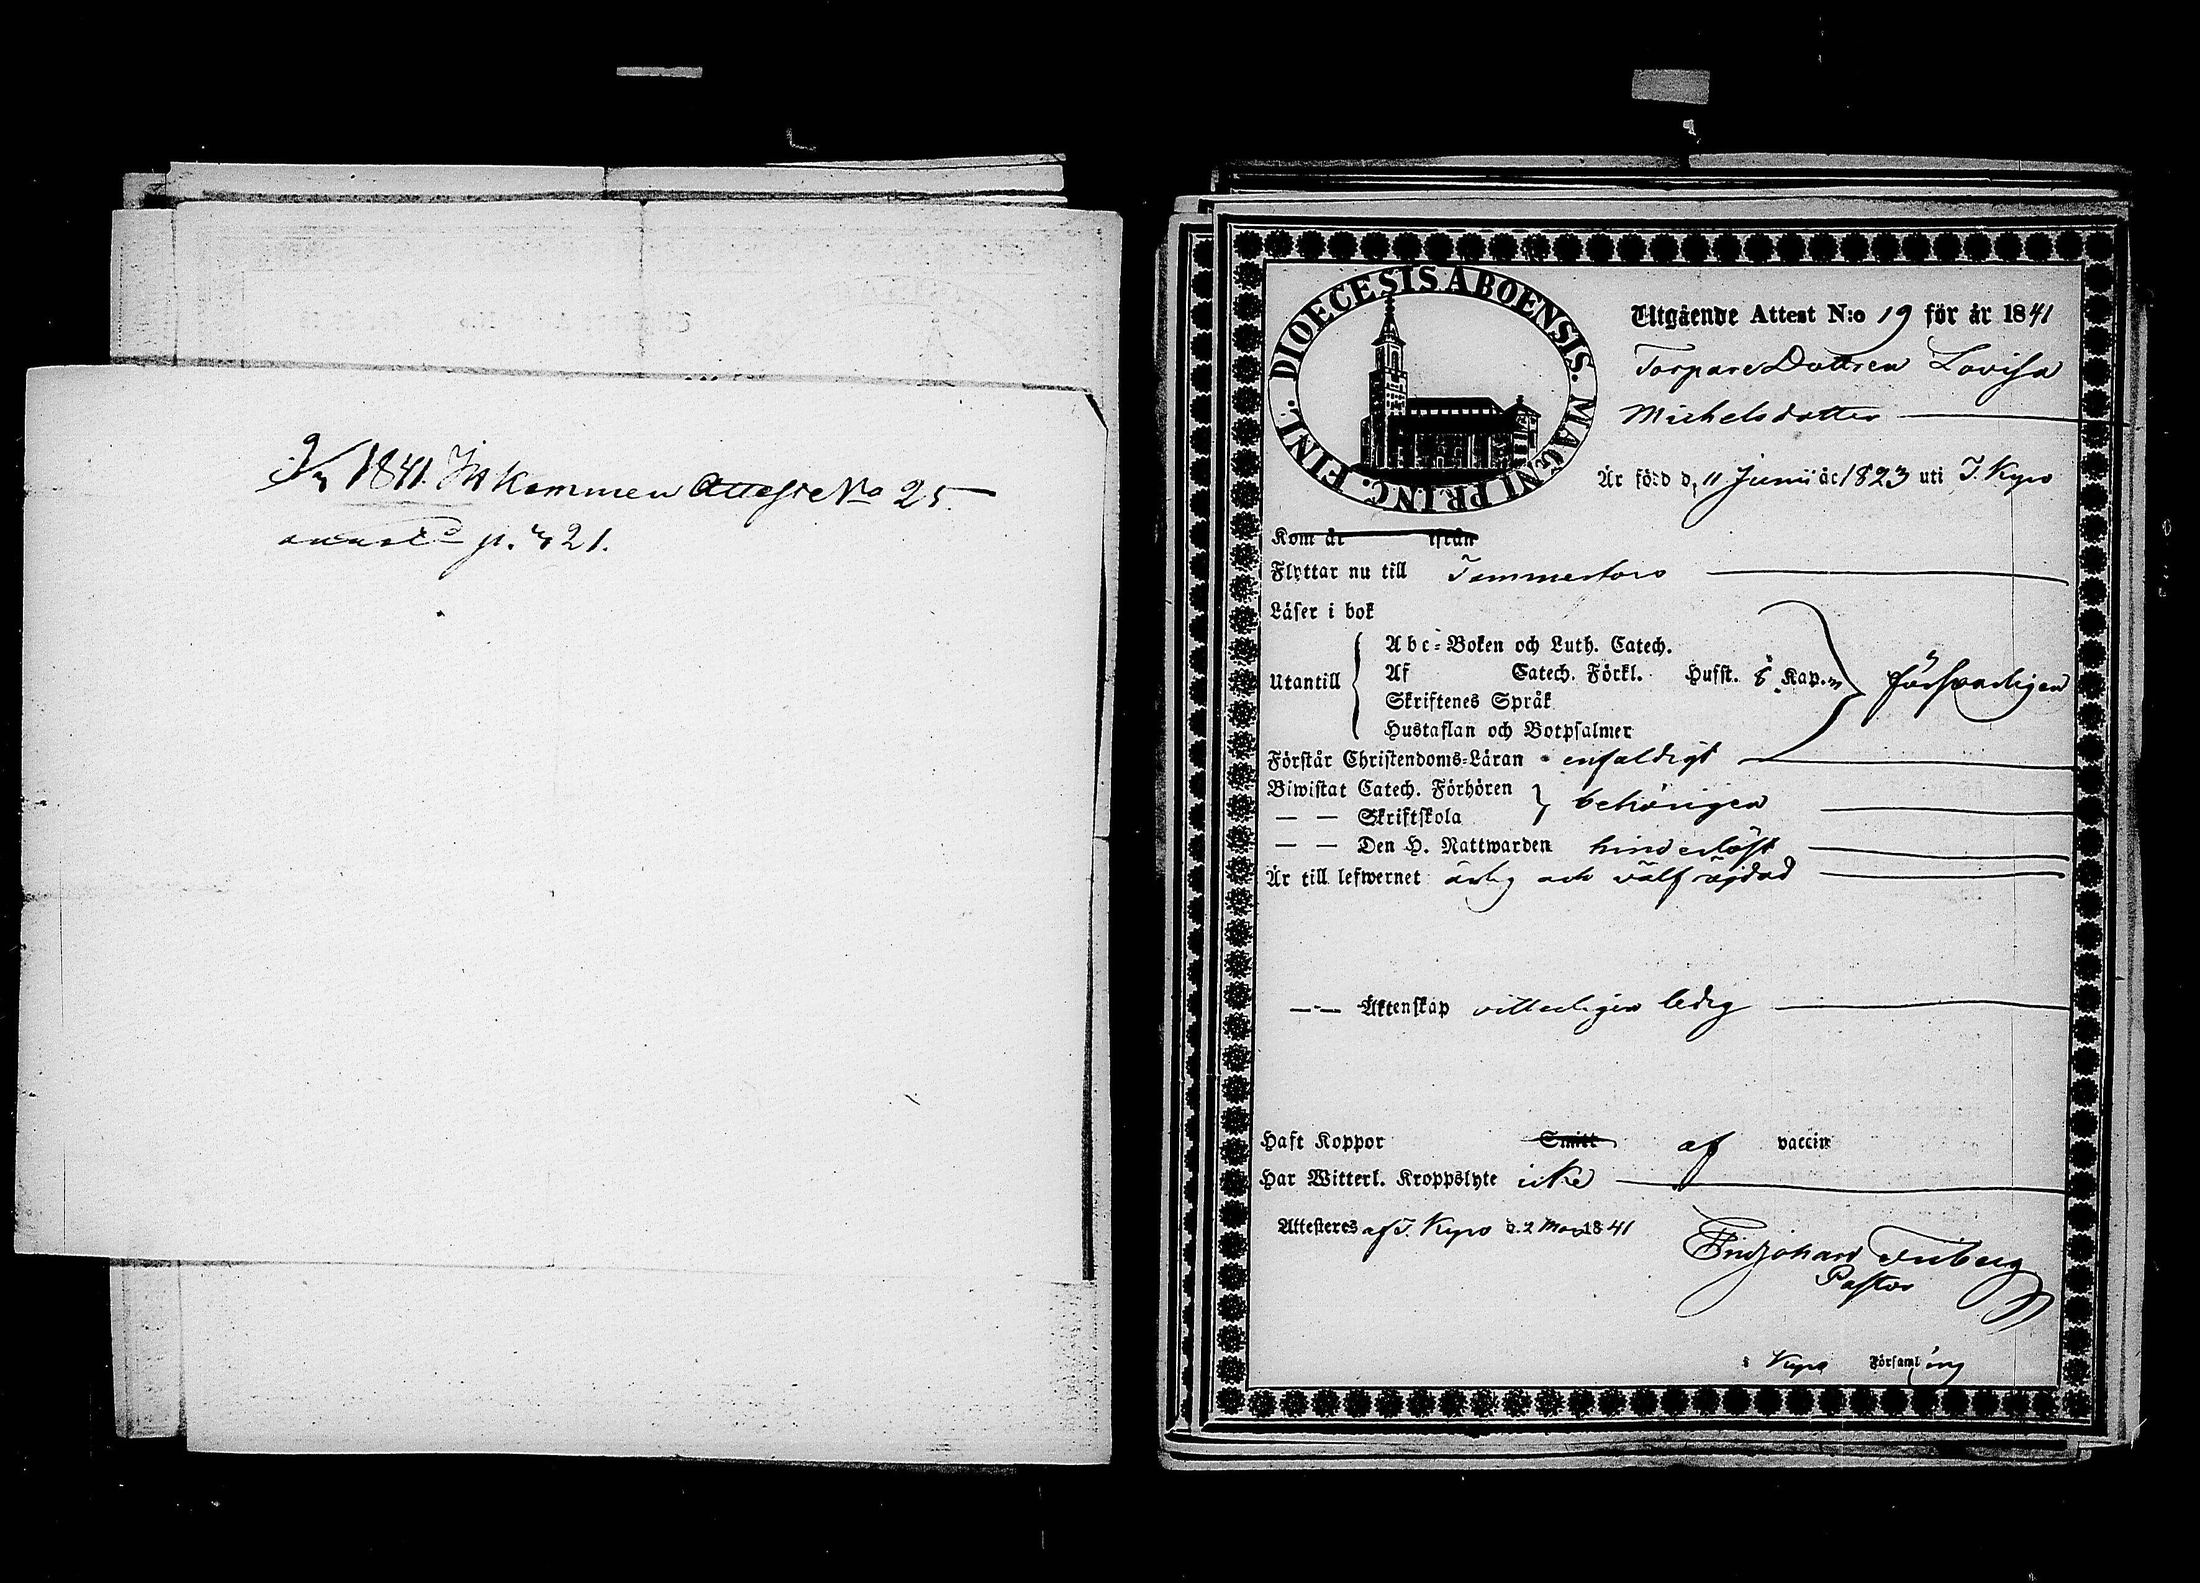 9/3 1841. Inkommen Attest No 25.
p. 421.
DIOECESIS ABOENSIS. MAGNI PRINC. FINL.
Utgående Attest N:o 19 för år 1841
Torpare Dottren Lovisa
Michelsdotter
Är född d. 11 Junii år 1823 uti T. Kyro
Kom år ifrån
Flyttar nu till Tammerfors
Läser i bok
Utantill
Abc-Boken och Luth. Catech.
Af Catech. Förkl. Hufst. & Kap.
Skriftenes Språk
Hustaflan och Botpsalmer
försvarligen
Förstår Christendoms-Läran enfaldigt
Biwistat Catech. Förhören
— — Skriftskola
behörigen
— — Den H. Nattwarden hinderlöst
Är till lefwernet ärlig och välfräjdad
— — Äktenskap vitterligen ledig
Haft Koppor Smitt af vaccin
Har Witterl. Kroppslyte icke
Attesteres af T. Kyro d. 2 Mars 1841
Friberg
Pastor
i Kyro Församling